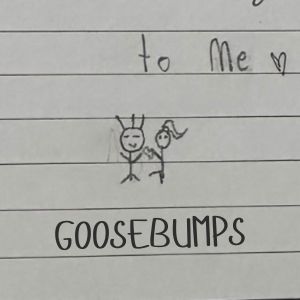 to Me
GOOSEBUMPS